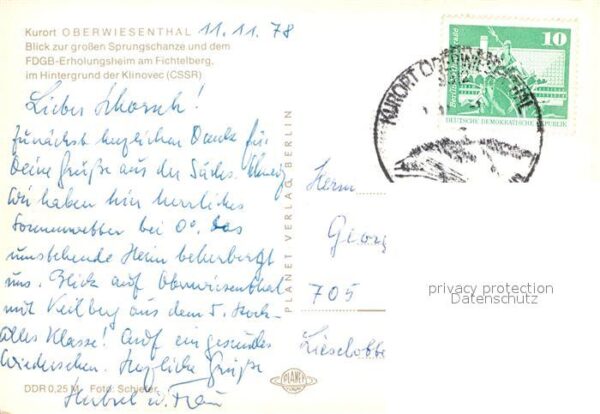 Kurort OBERWIESENTHAL 11.11.78
Blick zur großen Sprungschanze und dem
FDGB-Erholungsheim am Fichtelberg,
im Hintergrund der Klinovec (CSSR)
Lieber Schorsch!
Zunächst herzlichen Dank für
Deine Grüße aus der Sächs. Schweiz
Wir haben hier herrliches
Sonnenwetter bei 0°. Das
umstehende Heim beherbergt
uns. Blick auf Oberwiesenthal
mit Keilberg aus dem 5. Stock.
Alles Klasse! Auf ein gesundes
Wiedersehen. Herzliche Grüße
u. Frau
DDR 0,25 M Foto: Schieler
PLANET VERLAG BERLIN
PLANET
10
DEUTSCHE DEMOKRATISCHE REPUBLIK
KURORT OBERWIESENTHAL
Herrn
Georg
705
privacy protection
Datenschutz